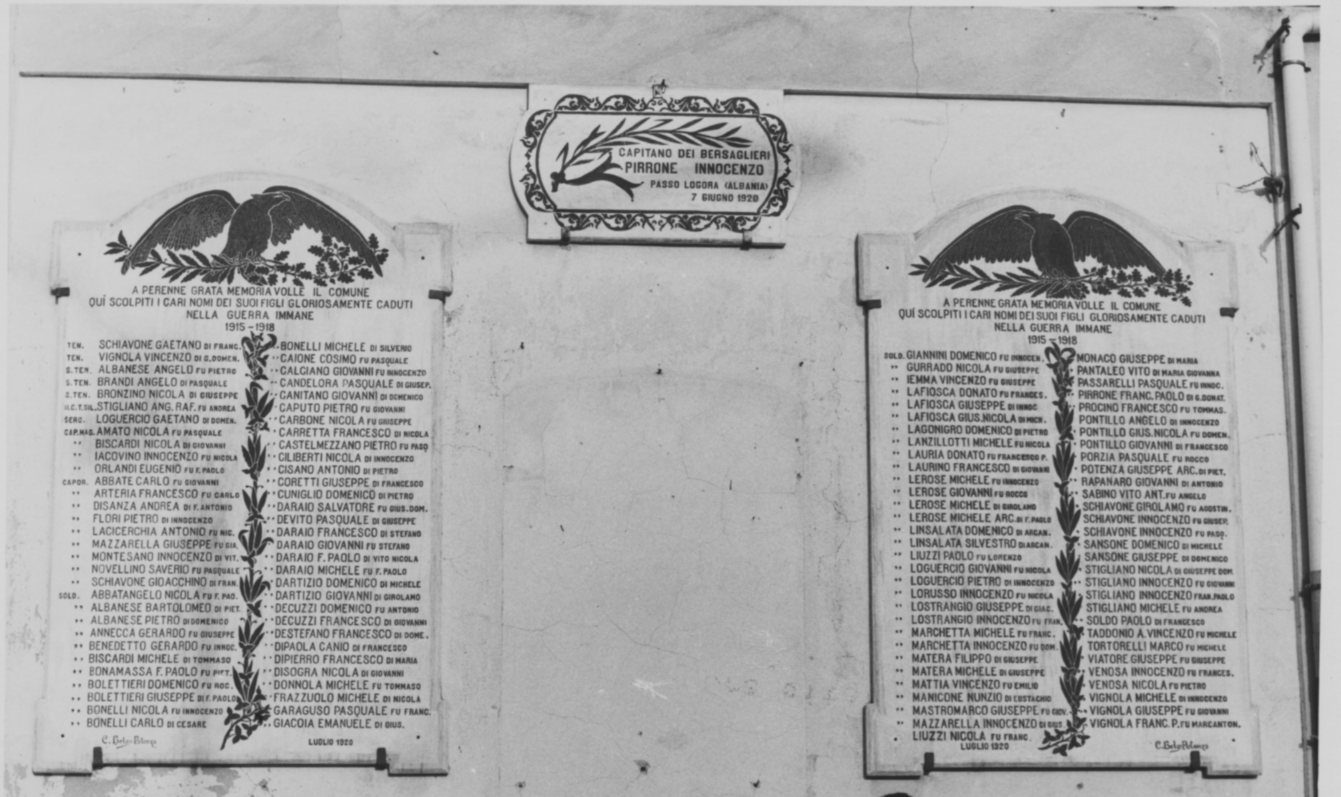 CAPITANO DEI BERSAGLIERI
PIRRONE INNOCENZO
PASSO LOGORA (ALBANIA)
7 GIUGNO 1920
A PERENNE GRATA MEMORIA VOLLE IL COMUNE
QUÍ SCOLPITI I CARI NOMI DEI SUOI FIGLI GLORIOSAMENTE CADUTI
NELLA GUERRA IMMANE
1915-1918
TEN. SCHIAVONE GAETANO DI FRANC.
TEN. VIGNOLA VINCENZO DI G.DOMEN.
S.TEN. ALBANESE ANGELO FU PIETRO
S.TEN. BRANDI ANGELO DI PASQUALE
S.TEN. BRONZINO NICOLA DI GIUSEPPE
STIGLIANO ANG. RAF. FU ANDREA
SERG. LOGUERCIO GAETANO DI DOMEN.
CAP.MAG. AMATO NICOLA FU PASQUALE
" BISCARDI NICOLA DI GIOVANNI
" IACOVINO INNOCENZO FU NICOLA
" ORLANDI EUGENIO FU F. PAOLO
CAPOR. ABBATE CARLO FU GIOVANNI
" ARTERIA FRANCESCO FU CARLO
" DISANZA ANDREA DI F. ANTONIO
" FLORI PIETRO DI INNOCENZO
" LACICERCHIA ANTONIO FU NIC.
" MAZZARELLA GIUSEPPE FU GIA.
" MONTESANO INNOCENZO DI VIT.
" NOVELLINO SAVERIO FU PASQUALE
" SCHIAVONE GIOACCHINO DI FRAN.
SOLD. ABBATANGELO NICOLA FU F. PAO.
" ALBANESE BARTOLOMEO DI PIET.
" ALBANESE PIETRO DI DOMENICO
" ANNECCA GERARDO FU GIUSEPPE
" BENEDETTO GERARDO FU INNOC.
" BISCARDI MICHELE DI TOMMASO
" BONAMASSA F. PAOLO FU PIET.
" BOLETTIERI DOMENICO FU ROC.
" BOLETTIERI GIUSEPPE DI F. PAOLO
" BONELLI NICOLA FU INNOCENZO
" BONELLI CARLO DI CESARE
" BONELLI MICHELE DI SILVERIO
" CAIONE COSIMO FU PASQUALE
" CALCIANO GIOVANNI FU INNOCENZO
" CANDELORA PASQUALE DI GIUSEP.
" CANITANO GIOVANNI DI DOMENICO
" CAPUTO PIETRO FU GIOVANNI
" CARBONE NICOLA FU GIUSEPPE
" CARRETTA FRANCESCO DI NICOLA
" CASTELMEZZANO PIETRO FU PASQ
" CILIBERTI NICOLA DI INNOCENZO
" CISANO ANTONIO DI PIETRO
" CORETTI GIUSEPPE DI FRANCESCO
" CUNIGLIO DOMENICO DI PIETRO
" DARAIO SALVATORE FU GIUS. DOM.
" DEVITO PASQUALE DI GIUSEPPE
" DARAIO FRANCESCO DI STEFANO
" DARAIO GIOVANNI FU STEFANO
" DARAIO F. PAOLO DI VITO NICOLA
" DARAIO MICHELE FU F. PAOLO
" DARTIZIO DOMENICO DI MICHELE
" DARTIZIO GIOVANNI DI GIROLAMO
" DECUZZI DOMENICO FU ANTONIO
" DECUZZI FRANCESCO DI GIOVANNI
" DESTEFANO FRANCESCO DI DOME.
" DIPAOLA CANIO DI FRANCESCO
" DIPIERRO FRANCESCO DI MARIA
" DISOGRA NICOLA DI GIOVANNI
" DONNOLA MICHELE FU TOMMASO
" FRAZZUOLO MICHELE DI NICOLA
" GARAGUSO PASQUALE FU FRANC.
" GIACOIA EMANUELE DI GIUS.
LUGLIO 1920
A PERENNE GRATA MEMORIA VOLLE IL COMUNE
QUÍ SCOLPITI I CARI NOMI DEI SUOI FIGLI GLORIOSAMENTE CADUTI
NELLA GUERRA IMMANE
1915-1918
SOLD. GIANNINI DOMENICO FU INNOCEN.
" GURRADO NICOLA FU GIUSEPPE
" IEMMA VINCENZO FU GIUSEPPE
" LAFIOSCA DONATO FU FRANCES.
" LAFIOSCA GIUSEPPE DI INNOC
" LAFIOSCA GIUS. NICOLA DI MICH.
" LAGONIGRO DOMENICO DI PIETRO
" LANZILLOTTI MICHELE FU NICOLA
" LAURIA DONATO FU FRANCESCO P.
" LAURINO FRANCESCO DI GIOVANI
" LEROSE MICHELE FU INNOCENZO
" LEROSE GIOVANNI FU ROCCO
" LEROSE MICHELE DI GIROLAMO
" LEROSE MICHELE ARC. DI F. PAOLO
" LINSALATA DOMENICO DI ARCAN.
" LINSALATA SILVESTRO DI ARCAN.
" LIUZZI PAOLO FU LORENZO
" LOGUERCIO GIOVANNI FU NICOLA
" LOGUERCIO PIETRO DI INNOCENZO
" LORUSSO INNOCENZO FU NICOLA
" LOSTRANGIO GIUSEPPE DI GIAC.
" LOSTRANGIO INNOCENZO FU FRAN.
" MARCHETTA MICHELE FU FRANC.
" MARCHETTA INNOCENZO FU DOM.
" MATERA FILIPPO DI GIUSEPPE
" MATERA MICHELE DI GIUSEPPE
" MATTIA VINCENZO FU EMILIO
" MANICONE NUNZIO DI EUSTACHIO
" MASTROMARCO GIUSEPPE FU GIOV.
" MAZZARELLA INNOCENZO DI GIUS
" LIUZZI NICOLA FU FRANC.
" MONACO GIUSEPPE DI MARIA
" PANTALEO VITO DI MARIA GIOVANNA
" PASSARELLI PASQUALE FU INNOC.
" PIRRONE FRANC. PAOLO DI G.DONAT.
" PROCINO FRANCESCO FU TOMMAS.
" PONTILLO ANGELO DI INNOCENZO
" PONTILLO GIUS. NICOLA FU DOMEN.
" PONTILLO GIOVANNI DI FRANCESCO
" PORZIA PASQUALE FU ROCCO
" POTENZA GIUSEPPE ARC. DI PIET.
" RAPANARO GIOVANNI DI ANTONIO
" SABINO VITO ANT. FU ANGELO
" SCHIAVONE GIROLAMO FU AGOSTIN.
" SCHIAVONE INNOCENZO FU GIUSEP.
" SCHIAVONE INNOCENZO FU PASQ.
" SANSONE DOMENICO DI MICHELE
" SANSONE GIUSEPPE DI DOMENICO
" STIGLIANO NICOLA DI GIUSEPPE DOM.
" STIGLIANO INNOCENZO FU GIOVANNI
" STIGLIANO INNOCENZO FRAN.PAOLO
" STIGLIANO MICHELE FU ANDREA
" SOLDO PAOLO DI FRANCESCO
" TADDONIO A. VINCENZO FU MICHELE
" TORTORELLI MARCO FU MICHELE
" VIATORE GIUSEPPE FU GIUSEPPE
" VENOSA INNOCENZO FU FRANCES.
" VENOSA NICOLA FU PIETRO
" VIGNOLA MICHELE DI INNOCENZO
" VIGNOLA GIUSEPPE FU GIOVANNI
" VIGNOLA FRANC. P. FU MARCANTON.
LUGLIO 1920